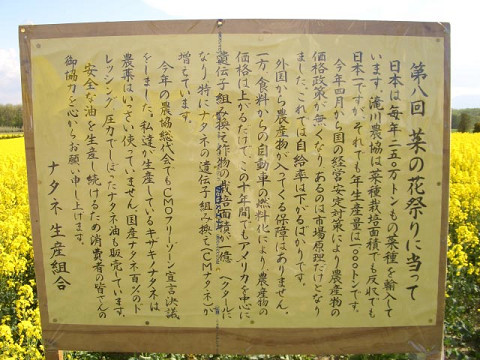 第八回 菜の花祭りに当って
日本は毎年二五〇万トンもの菜種を輸入して
います。滝川農協は菜種栽培面積でも反収でも
日本一ですが、それでも年生産量は一〇〇〇トンです。
今年四月から国の経営安定対策により農産物の
価格政策が無くなり、あるのは市場原理だけとなり
ました。これでは自給率は下がるばかりです。
外国から農産物が入ってくる保障はありません。
一方、食料からの自動車の燃料化により、農産物の
価格は上がるだけで、この十年間でもアメリカ中心に
遺伝子組み換え作物の栽培面積が一億ヘクタールに
なり、特にナタネの遺伝子組み換え(GMナタネ)が
増えています。
今年の農協総代会でもGMOフリーゾーン宣言決議
をしました。私達が生産しているキザキノナタネは、
農薬はいっさい使っていません。国産ナタネ百%のド
レッシング、圧力でしぼったナタネ油も販売しています。
安全な油を生産し続けるため消費者の皆さんの
御協力を心からお願い申し上げます。
ナタネ生産組合